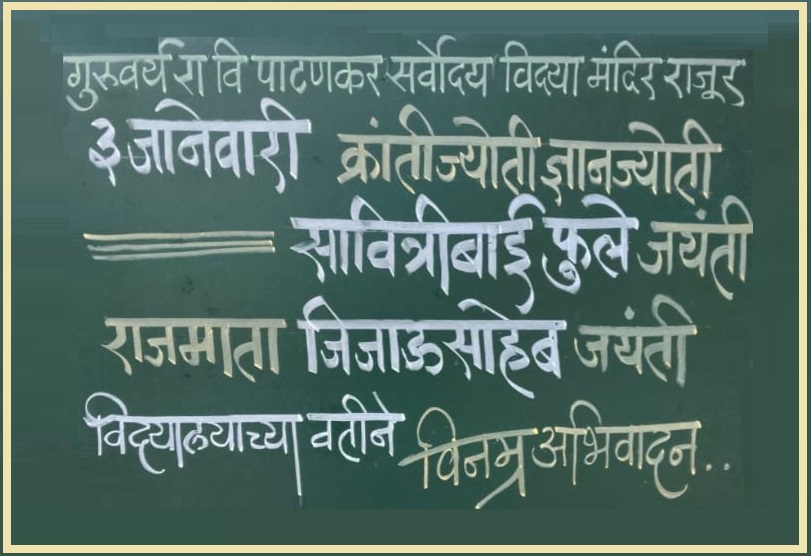 गुरुवर्य रा वि पाटणकर सर्वोदय विद्या मंदिर राजूर
३ जानेवारी क्रांतीज्योती ज्ञानज्योती
सावित्रीबाई फुले जयंती
राजमाता जिजाऊ साहेब जयंती
विद्यालयाच्या वतीने विनम्र अभिवादन..